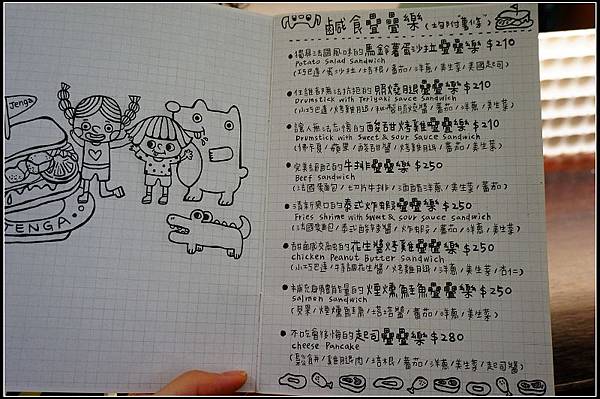 Jenga
JENGA
鹹食疊疊樂(均附"薯條")
獨具法國風味的馬鈴薯蛋沙拉疊疊樂$210
Potato Salad Sandwich
(巧巴達/蛋沙拉/培根/蕃茄/洋蔥/美生菜/美國起司)
任誰都無法抗拒的照燒腿疊疊樂$210
Drumstick with Teriyaki sauce Sandwich
(小巧巴達/烤雞腿/照燒醬/蕃茄/洋蔥/美生菜)
讓人無法忘懷的酸甜烤雞疊疊樂$210
Drumstick with sweet & sour sauce Sandwich
(佛卡夏/蘋果/酸甜醬/烤雞腿/蕃茄/美生菜)
完美自己的牛排疊疊樂$250
Beef Sandwich
(法國麵包/牛排/洋蔥/美生菜/蕃茄)
清新爽口的泰式炸蝦疊疊樂$250
Fries Shrime with sweet & sour sauce Sandwich
(法國麵包/泰式酸辣醬/炸蝦/蕃茄/洋蔥/美生菜)
甜鹹交融的花生醬烤雞疊疊樂$250
chicken Peanut Butter Sandwich
(小巧巴達/特調花生醬/烤雞腿/洋蔥/美生菜/杏仁)
補充腦細胞能量的煙燻鮭魚疊疊樂$250
Salmon Sandwich
(貝果/煙燻鮭魚/塔塔醬/蕃茄/洋蔥/美生菜)
不吃會後悔的起司疊疊樂$280
cheese Pancake
(鬆餅/雞腿肉/培根/蕃茄/洋蔥/美生菜/起司醬)